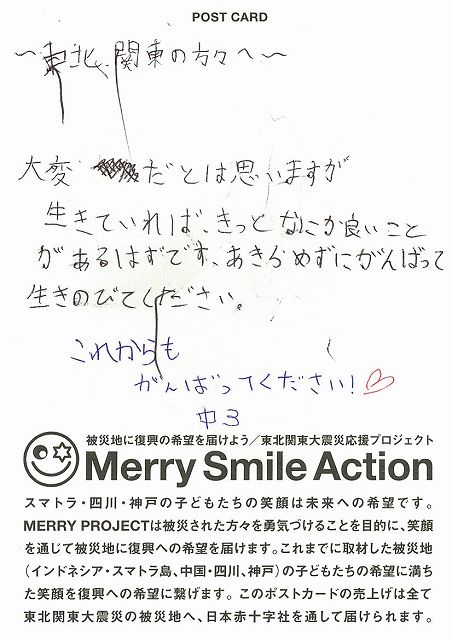 POST CARD
〜東北、関東の方々へ〜
大変 だとは思いますが
生きていれば、きっとなにか良いこと
があるはずです、あきらめずにがんばって
生きのびてください。
これからも
がんばってください!♡
中3
被災地に復興の希望を届けよう／東北関東大震災応援プロジェクト
Merry Smile Action
スマトラ・四川・神戸の子どもたちの笑顔は未来への希望です。
MERRY PROJECTは被災された方々を勇気づけることを目的に、笑顔
を通じて被災地に復興への希望を届けます。これまでに取材した被災地
（インドネシア・スマトラ島、中国・四川、神戸）の子どもたちの希望に満ち
た笑顔を復興への希望に繋げます。このポストカードの売上げは全て
東北関東大震災の被災地へ、日本赤十字社を通して届けられます。